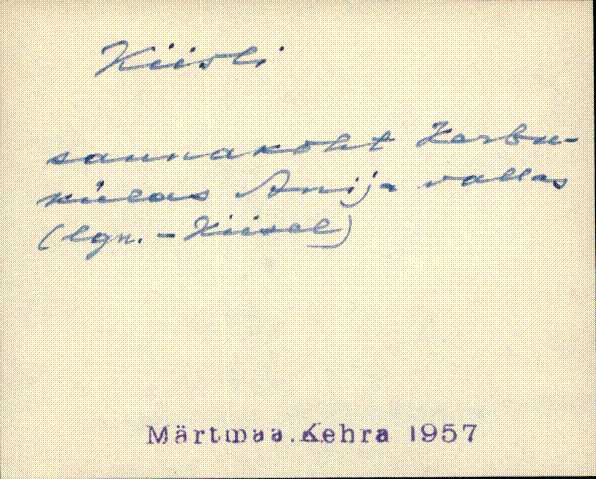 Kiisli
saunakoht Kerbu-
külas Anija vallas
(lgn. - Kiisel)
Märtmaa.Kehra 1957